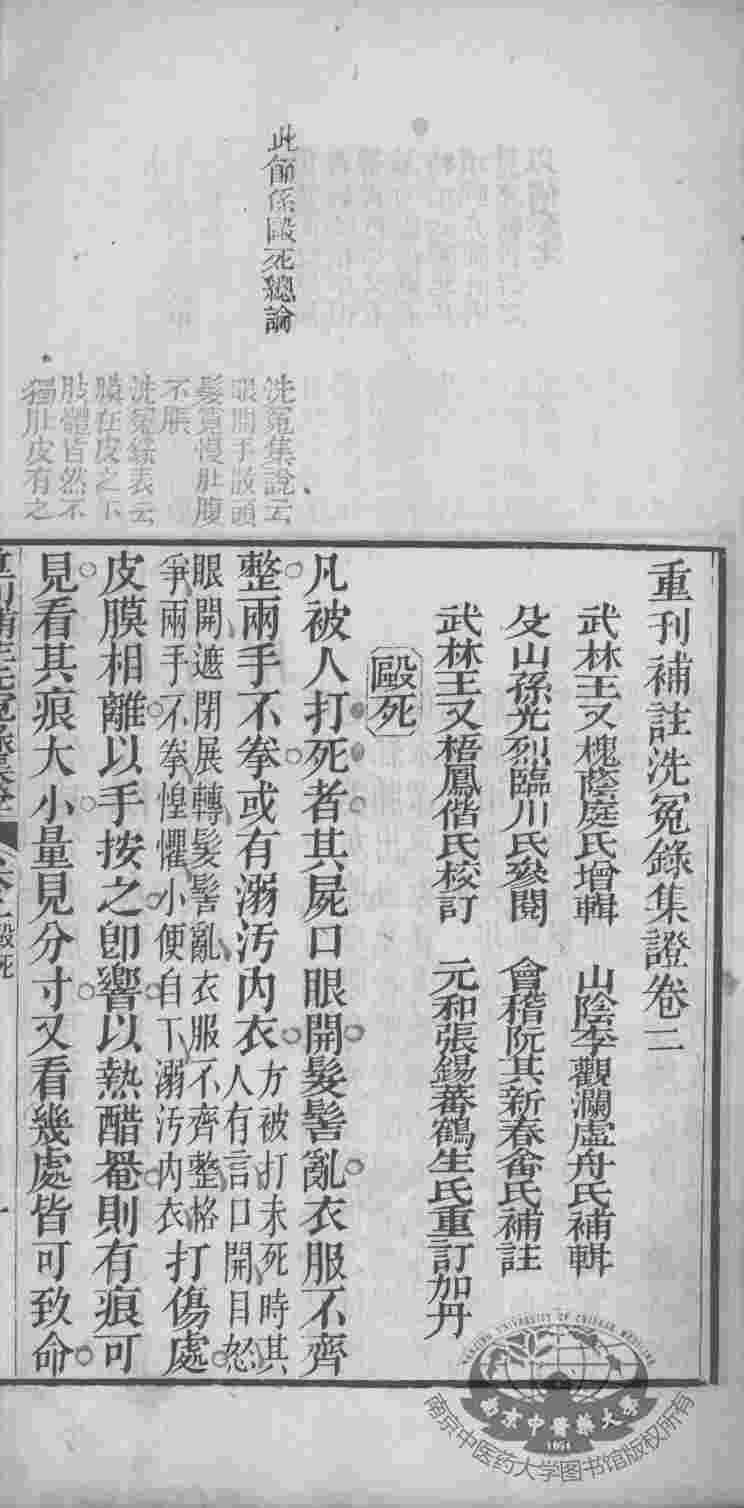 此節係毆死總論
洗冤集說云
眼開手散頭
髮寬慢肚腹
不脹
洗冤錄表云
膜在皮之下
肢體皆然不
獨肚皮有之
重刊補註洗冤錄集證卷二
武林王又槐蔭庭氏增輯 山陰李觀瀾虛舟氏補輯
及山孫光烈臨川氏參閱 會稽阮其新春畬氏補註
武林王又梧鳳偕氏校訂 元和張錫蕃鶴生氏重訂加丹
毆死
凡被人打死者其屍口眼開髮髻亂衣服不齊
整兩手不拳或有溺汚內衣
方被打未死時其
人有言口開目怒
眼開遮閉展轉髮髻亂衣服不齊整格
爭兩手不拳惶懼小便自下溺汚內衣
打傷處
皮膜相離以手按之卽響以熱醋罨則有痕可
見看其痕大小量見分寸又看幾處皆可致命
毆死
一
NANJING UNIVERSITY OF CHINESE MEDICINE
南京中醫藥大學
1954
南京中医药大学图书馆版权所有